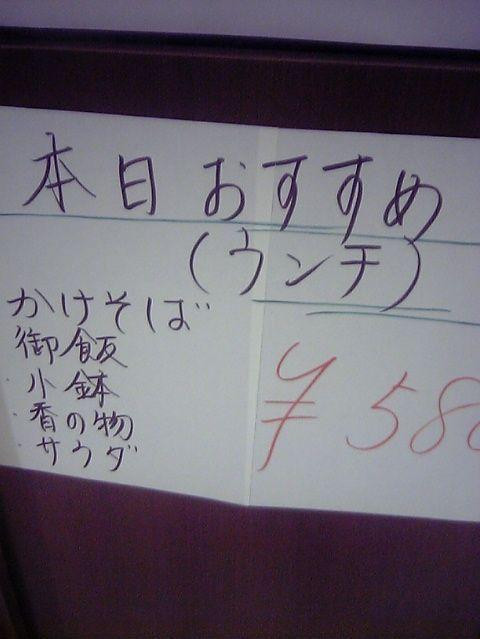 本日おすすめ
(ウンチ)
かけそば
御飯
小鉢
香の物
サウダ
¥580